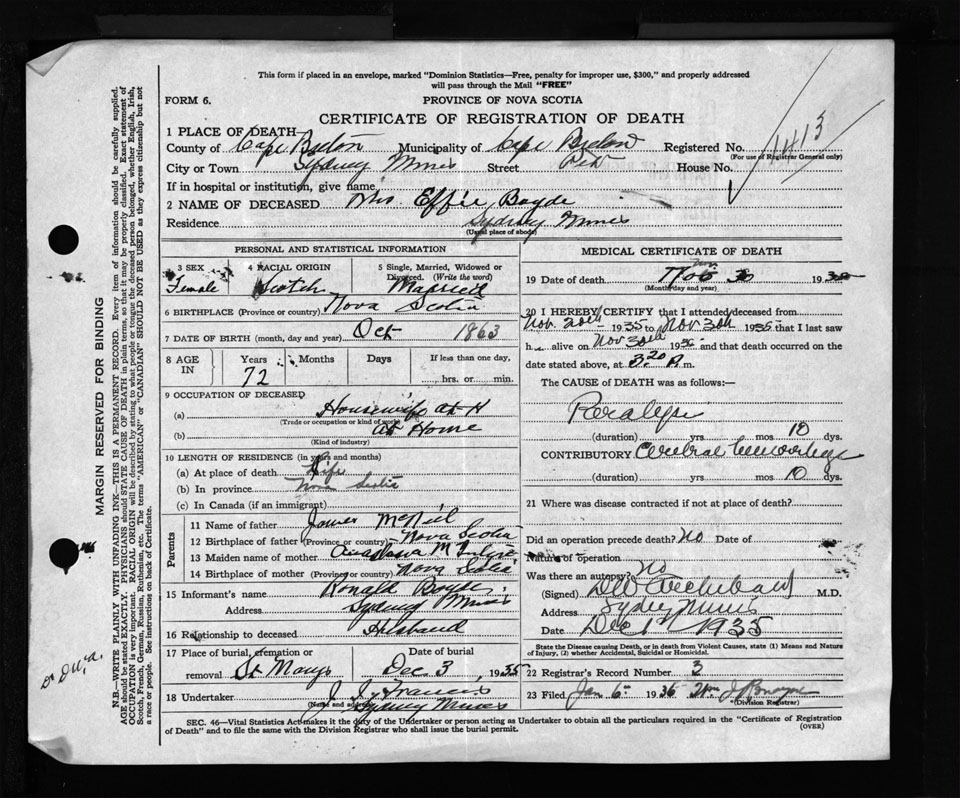 This form if placed in an envelope, marked "Dominion Statistics—Free, penalty for improper use, $300," and properly addressed
will pass through the Mail "FREE"
FORM 6.
PROVINCE OF NOVA SCOTIA
CERTIFICATE OF REGISTRATION OF DEATH
1413
1 PLACE OF DEATH
County of Cape Breton Municipality of Cape Breton Registered No.
(For use of Registrar General only)
City or Town Sydney Mines Street House No.
If in hospital or institution, give name
2 NAME OF DECEASED Mrs. Effie Boyde
Residence Sydney Mines
(Usual place of abode)
PERSONAL AND STATISTICAL INFORMATION
3 SEX 4 RACIAL ORIGIN 5 Single, Married, Widowed or
Divorced. (Write the word)
Female Scotch Married
6 BIRTHPLACE (Province or country) Nova Scotia
7 DATE OF BIRTH (month, day and year) Oct 1863
8 AGE IN Years Months Days If less than one day,
72 hrs. or min.
9 OCCUPATION OF DECEASED
(a) Housewife at H
(Trade or occupation or kind of work)
(b) at Home
(Kind of industry)
10 LENGTH OF RESIDENCE (in years and months)
(a) At place of death Life
(b) In province Nova Scotia
(c) In Canada (if an immigrant)
Parents
11 Name of father James McNeil
12 Birthplace of father (Province or country) Nova Scotia
13 Maiden name of mother
14 Birthplace of mother (Province or country) Nova Scotia
15 Informant's name Ronald Boyde
Address Sydney Mines
16 Relationship to deceased Husband
17 Place of burial, cremation or Date of burial
removal St Marys Dec 3, 1935
18 Undertaker J. J. Francis
(Name and address) Sydney Mines
MEDICAL CERTIFICATE OF DEATH
19 Date of death Nov 30 1935
(Month, day and year)
20 I HEREBY CERTIFY that I attended deceased from
Nov. 20th 1935 to Nov 30th 1935 that I last saw
h alive on Nov 30th 1935 and that death occurred on the
date stated above, at 3.20 A m.
The CAUSE of DEATH was as follows:—
Paralysis
(duration) yrs mos 10 dys.
CONTRIBUTORY Cerebral Hemorrhage
(duration) yrs mos 10 dys.
21 Where was disease contracted if not at place of death?
Did an operation precede death? No Date of
Nature of operation
Was there an autopsy? No
(Signed) Archibald M.D.
Address Sydney Mines
Date Dec 1st 1935
State the Disease causing Death, or in death from Violent Causes, state (1) Means and Nature
of Injury, (2) whether Accidental, Suicidal or Homicidal.
22 Registrar's Record Number 3
23 Filed Jan 6th 1936
(Division Registrar)
SEC. 46—Vital Statistics Act makes it the duty of the Undertaker or person acting as Undertaker to obtain all the particulars required in the "Certificate of Registration
of Death" and to file the same with the Division Registrar who shall issue the burial permit.
(OVER)
MARGIN RESERVED FOR BINDING
N.B.—WRITE PLAINLY WITH UNFADING INK—THIS IS A PERMANENT RECORD. Every item of information should be carefully supplied.
AGE should be stated EXACTLY. PHYSICIANS should STATE CAUSE OF DEATH in plain terms, so that it may be properly classified. Exact statement of
OCCUPATION is very important. RACIAL ORIGIN will be described by stating to what people or tongue the deceased person belonged, whether English, Irish,
Scotch, French, German, Russian, Ruthenian, etc. The terms "AMERICAN" or "CANADIAN" SHOULD NOT BE USED as they express citizenship but not
a race or people. See instructions on back of Certificate.